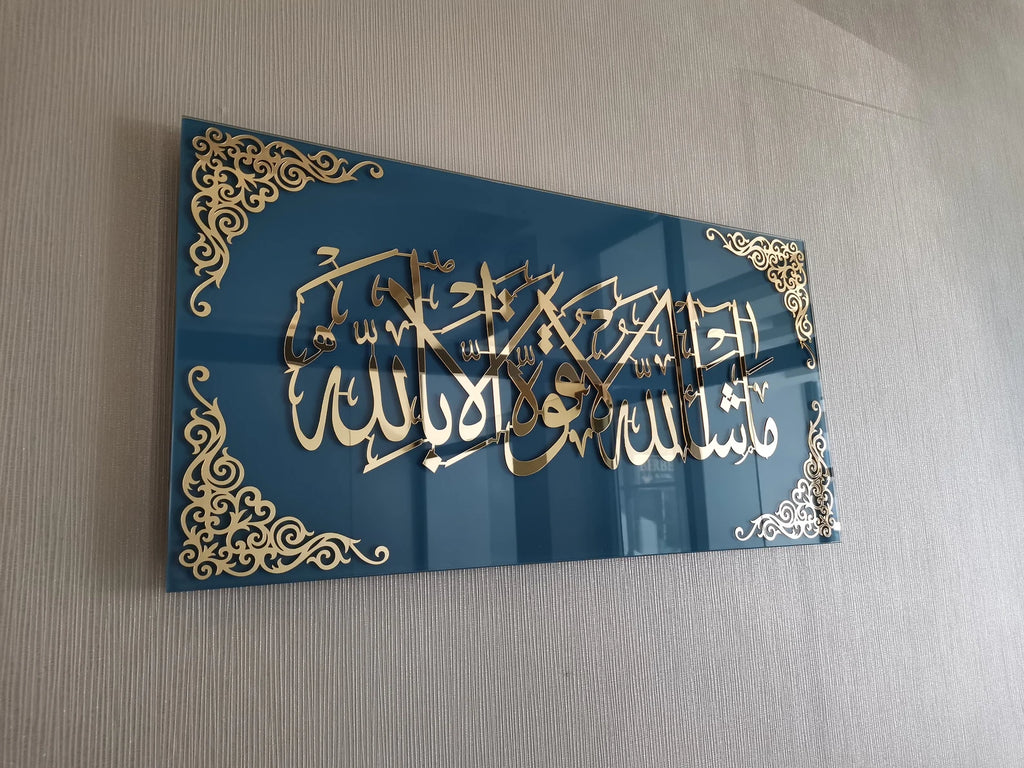 ما شاء الله لا قوة الا بالله